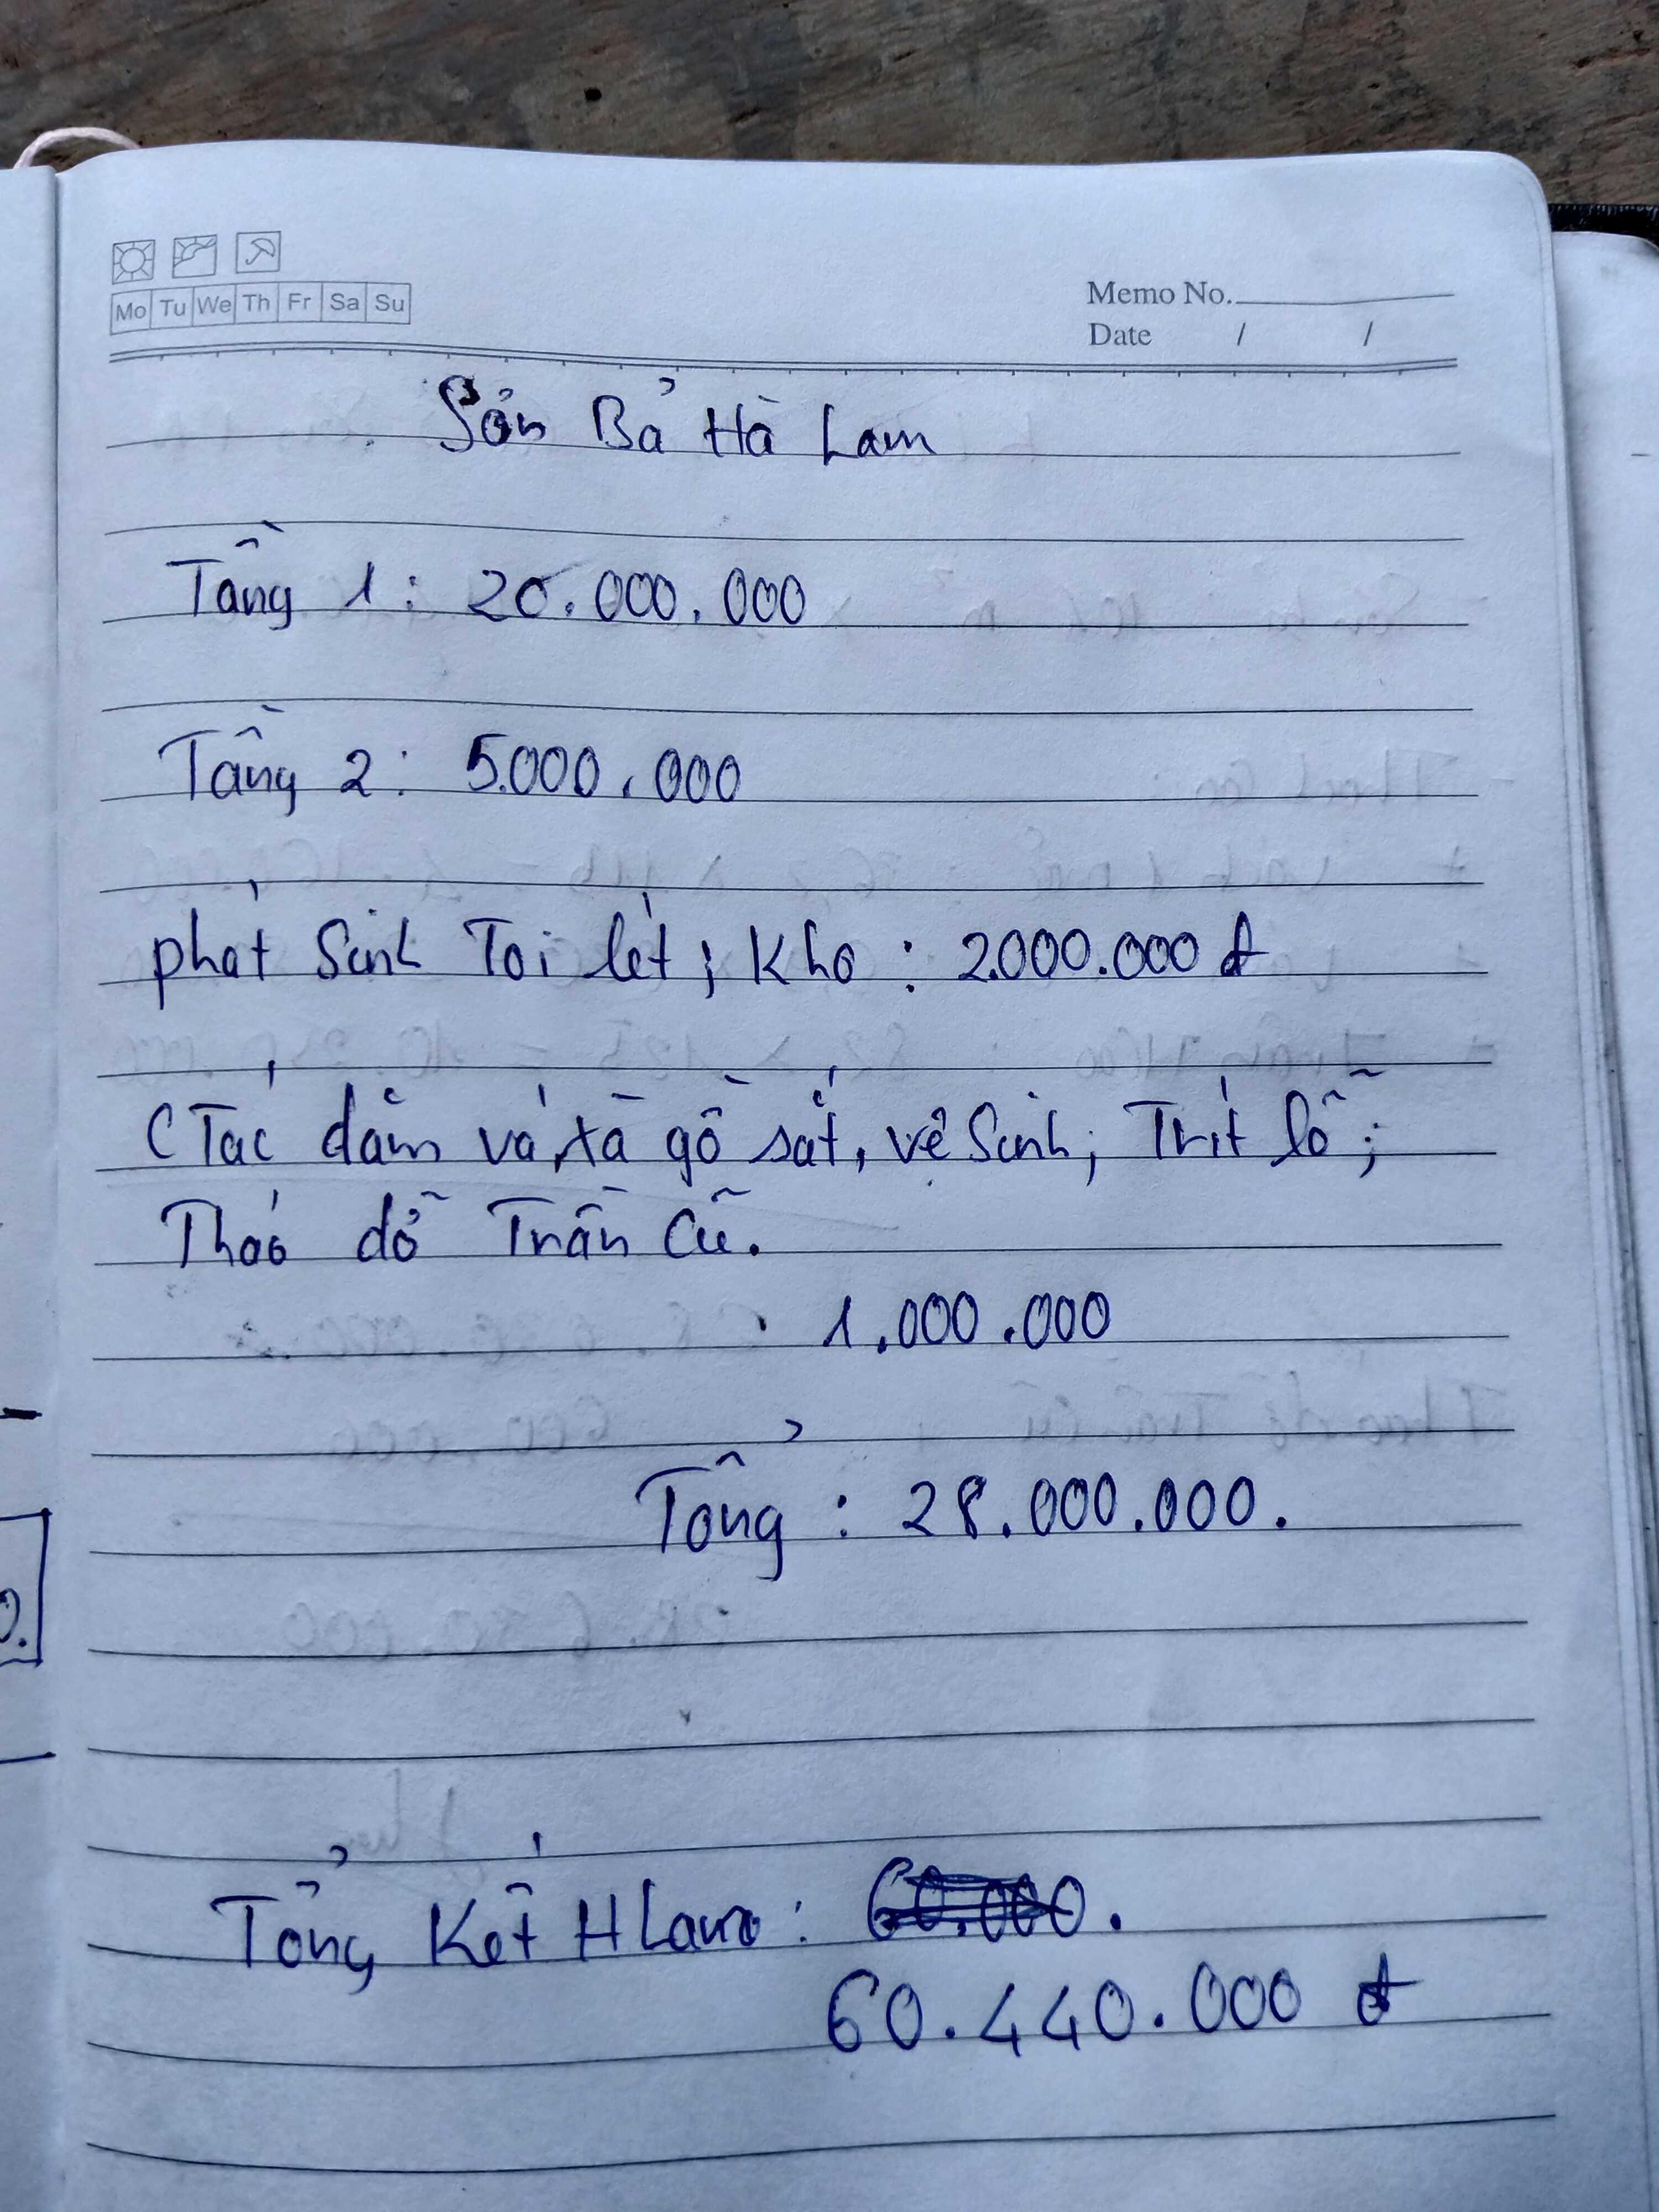 Mo Tu We Th Fr Sa Su
Memo No.
Date / /
Sơn Bả Hà Lam
Tầng 1 : 20.000.000
Tầng 2 : 5.000.000
phát Sinh Toi lét ; Kho : 2.000.000 đ
( Tác dăm vá, xà gồ sắt, vệ Sinh ; Trít lỗ ;
Tháo dỡ Trần Cũ.
1.000.000
Tổng : 28.000.000.
Tổng Kết H Lam :
60.440.000 đ